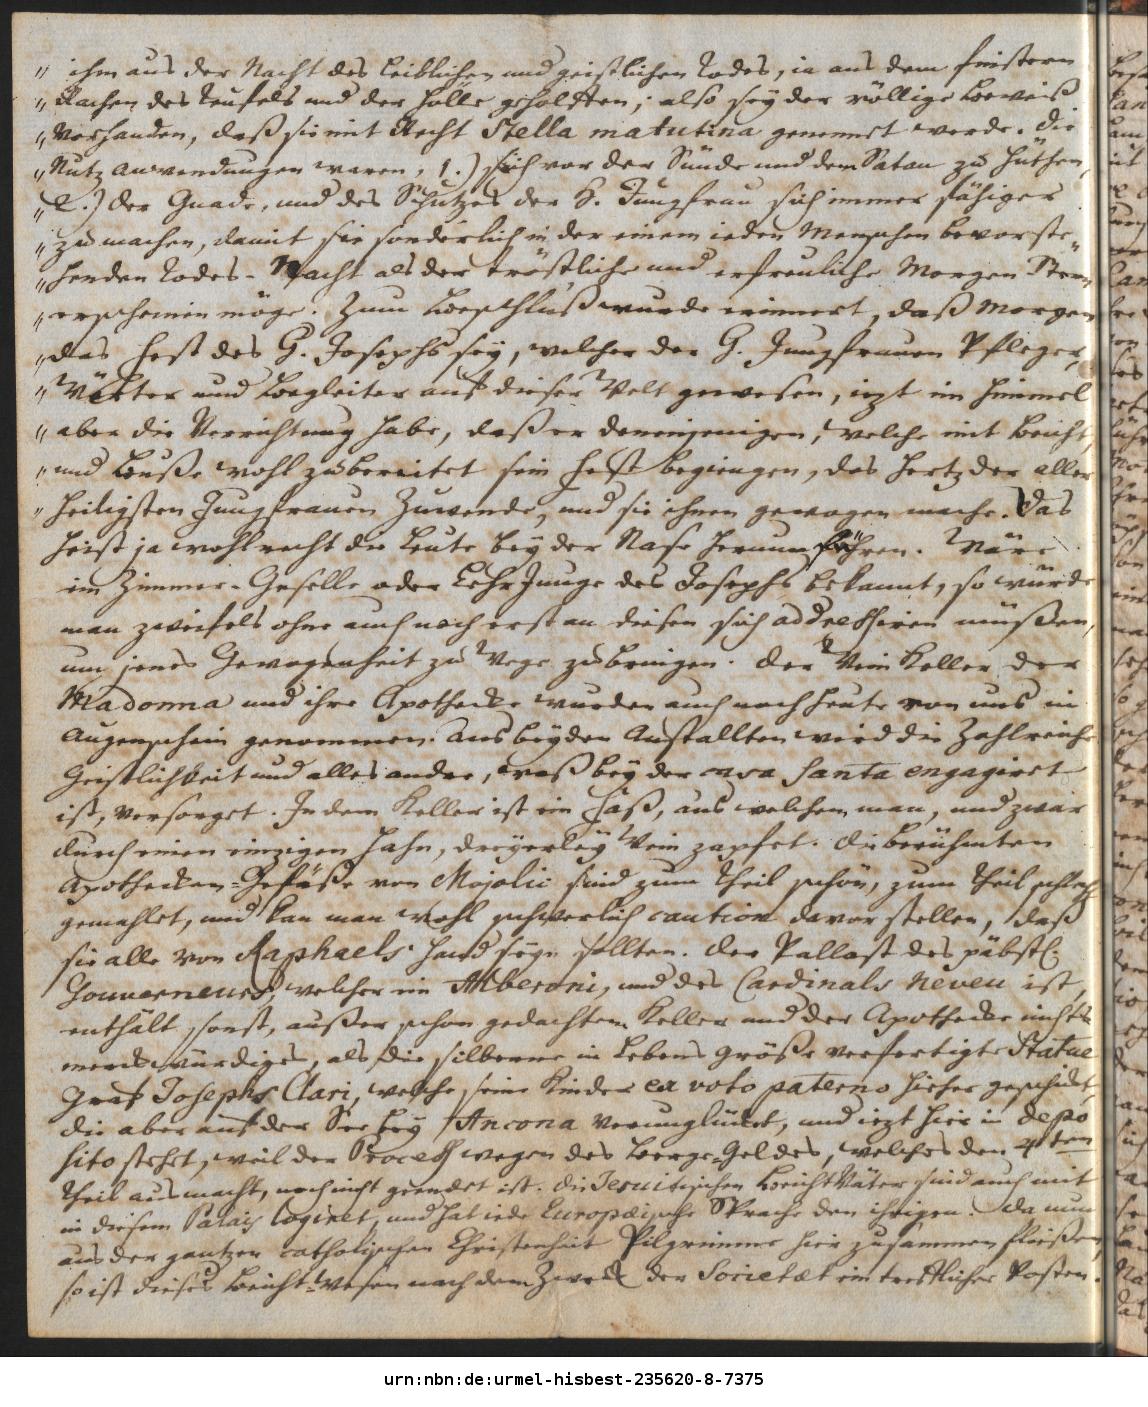 " ihm aus der Nacht des leiblichen und geistlichen Todes, ia aus dem finstern
" Rachen des Teufels und der Hölle geholffen; also sey der völlige Beweiß
" Vorhanden, daß sie mit Recht Stella matutina genennet werde. Die
" Nutz anwendungen waren, 1.) sich vor der Sünde und dem Satan zu hüthen,
" 2.) der Gnade, und des Schutzes der H. Jungfrau sich immer fähiger
" zu machen, damit sie sonderlich in der einem ieden Menschen bevorste=
" henden Todes-Nacht als der tröstliche und erfreuliche Morgen Stern
" erscheinen möge. Zum Beschluß wurde erinnert, daß morgen
" das Fest des H. Josephs sey, welcher der H. Jungfrauen Pfleger,
" Wächter und Begleiter auf dieser Welt gewesen, itzt im Himmel
" aber die Verrichtung habe, daß er denenjenigen, welche mit Beicht,
" und Buße wohl zubereitet sein Fest begiengen, das Hertz der aller
" heiligsten Jungfrauen Zuwende, und sie ihnen gewogen mache. Das
heist ja wohl recht die Leute bey der Nase herum führen. Wäre
ein Zimmer-Geselle oder Lehr Junge des Josephs bekannt, so würde
man zweifels ohne auch noch erst an diesen sich addressiren müßen,
um jenes Gewogenheit zu Wege zubringen. Der Wein Keller der
Madonna und ihre Apothecke wurden auch noch heute von uns in
Augenschein genommen. Aus beyden Anstallten wird die Zahlreiche
Geistlichkeit und alles andre, waß bey der casa santa engagiret
ist, versorget. In dem Keller ist ein Faß, aus welchem man, und zwar
durch einen einzigen Hahn, dreyerley Wein zapfet. Die berühmten
Apothecken-Gefäße von Majolic sind zum Theil schön, zum Theil schlecht
gemahlet, und kan man wohl schwerlich caution davor stellen, daß
sie alle von Raphaels Hand seyn sollten. Der Pallast des päbstl.
Gouverneurs, welcher ein Alberoni, und des Cardinals Neveu ist,
enthält sonst, außer schon gedachtem Keller und der Apothecke nichts
merckwürdiges, als die silberne in Lebens größe verfertigte Statue
Graf Josephs Clari, welche seine Kinder ex voto paterno hieher geschickt,
die aber auf der See bey Ancona verunglückt, und itzt hier in depo
sito stehet, weil der Process wegen des Berge-Geldes, welches den 4ten
Theil ausmacht, noch nicht geendet ist. Die Jesuitischen Beicht Väter sind auch mit
in diesem Palais logiret, und hat iede Europæische Sprache den ihrigen. Da nun
aus der gantzen catholischen Christenheit Pilgrimme hier zusammen fließen,
so ist dieses Beicht-Wesen nach dem Zweck der Societæt ein trefflicher Posten.
urn:nbn:de:urmel-hisbest-235620-8-7375